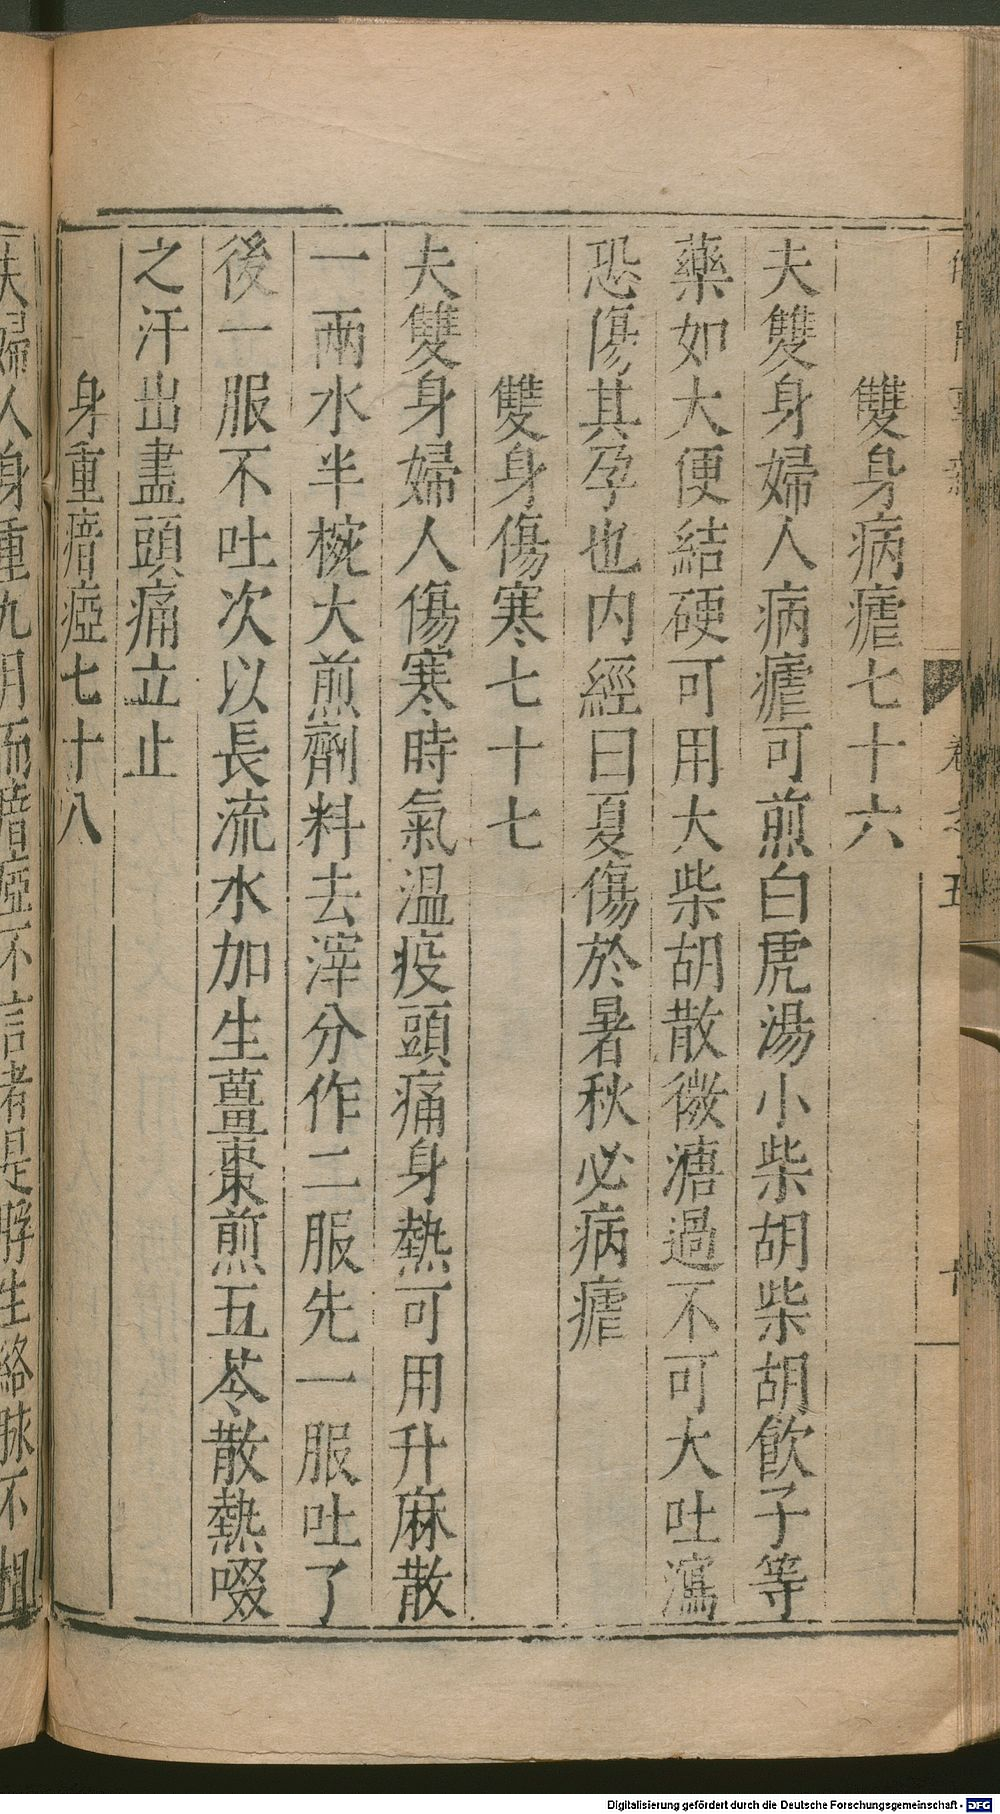 雙身病瘧七十六
夫雙身婦人病瘧可煎白虎湯小柴胡柴胡飲子等
藥如大便結硬可用大柴胡散微溏過不可大吐瀉
恐傷其孕也内經曰夏傷於暑秋必病瘧
雙身傷寒七十七
夫雙身婦人傷寒時氣温疫頭痛身熱可用升麻散
一兩水半椀大煎劑料去滓分作二服先一服吐了
後一服不吐次以長流水加生薑棗煎五苓散熱啜
之汗出盡頭痛立止
身重瘖瘂七十八
夫婦人身重九月而瘖瘂不言者是脬生絡脉不相
Digitalisierung gefördert durch die Deutsche Forschungsgemeinschaft - DFG